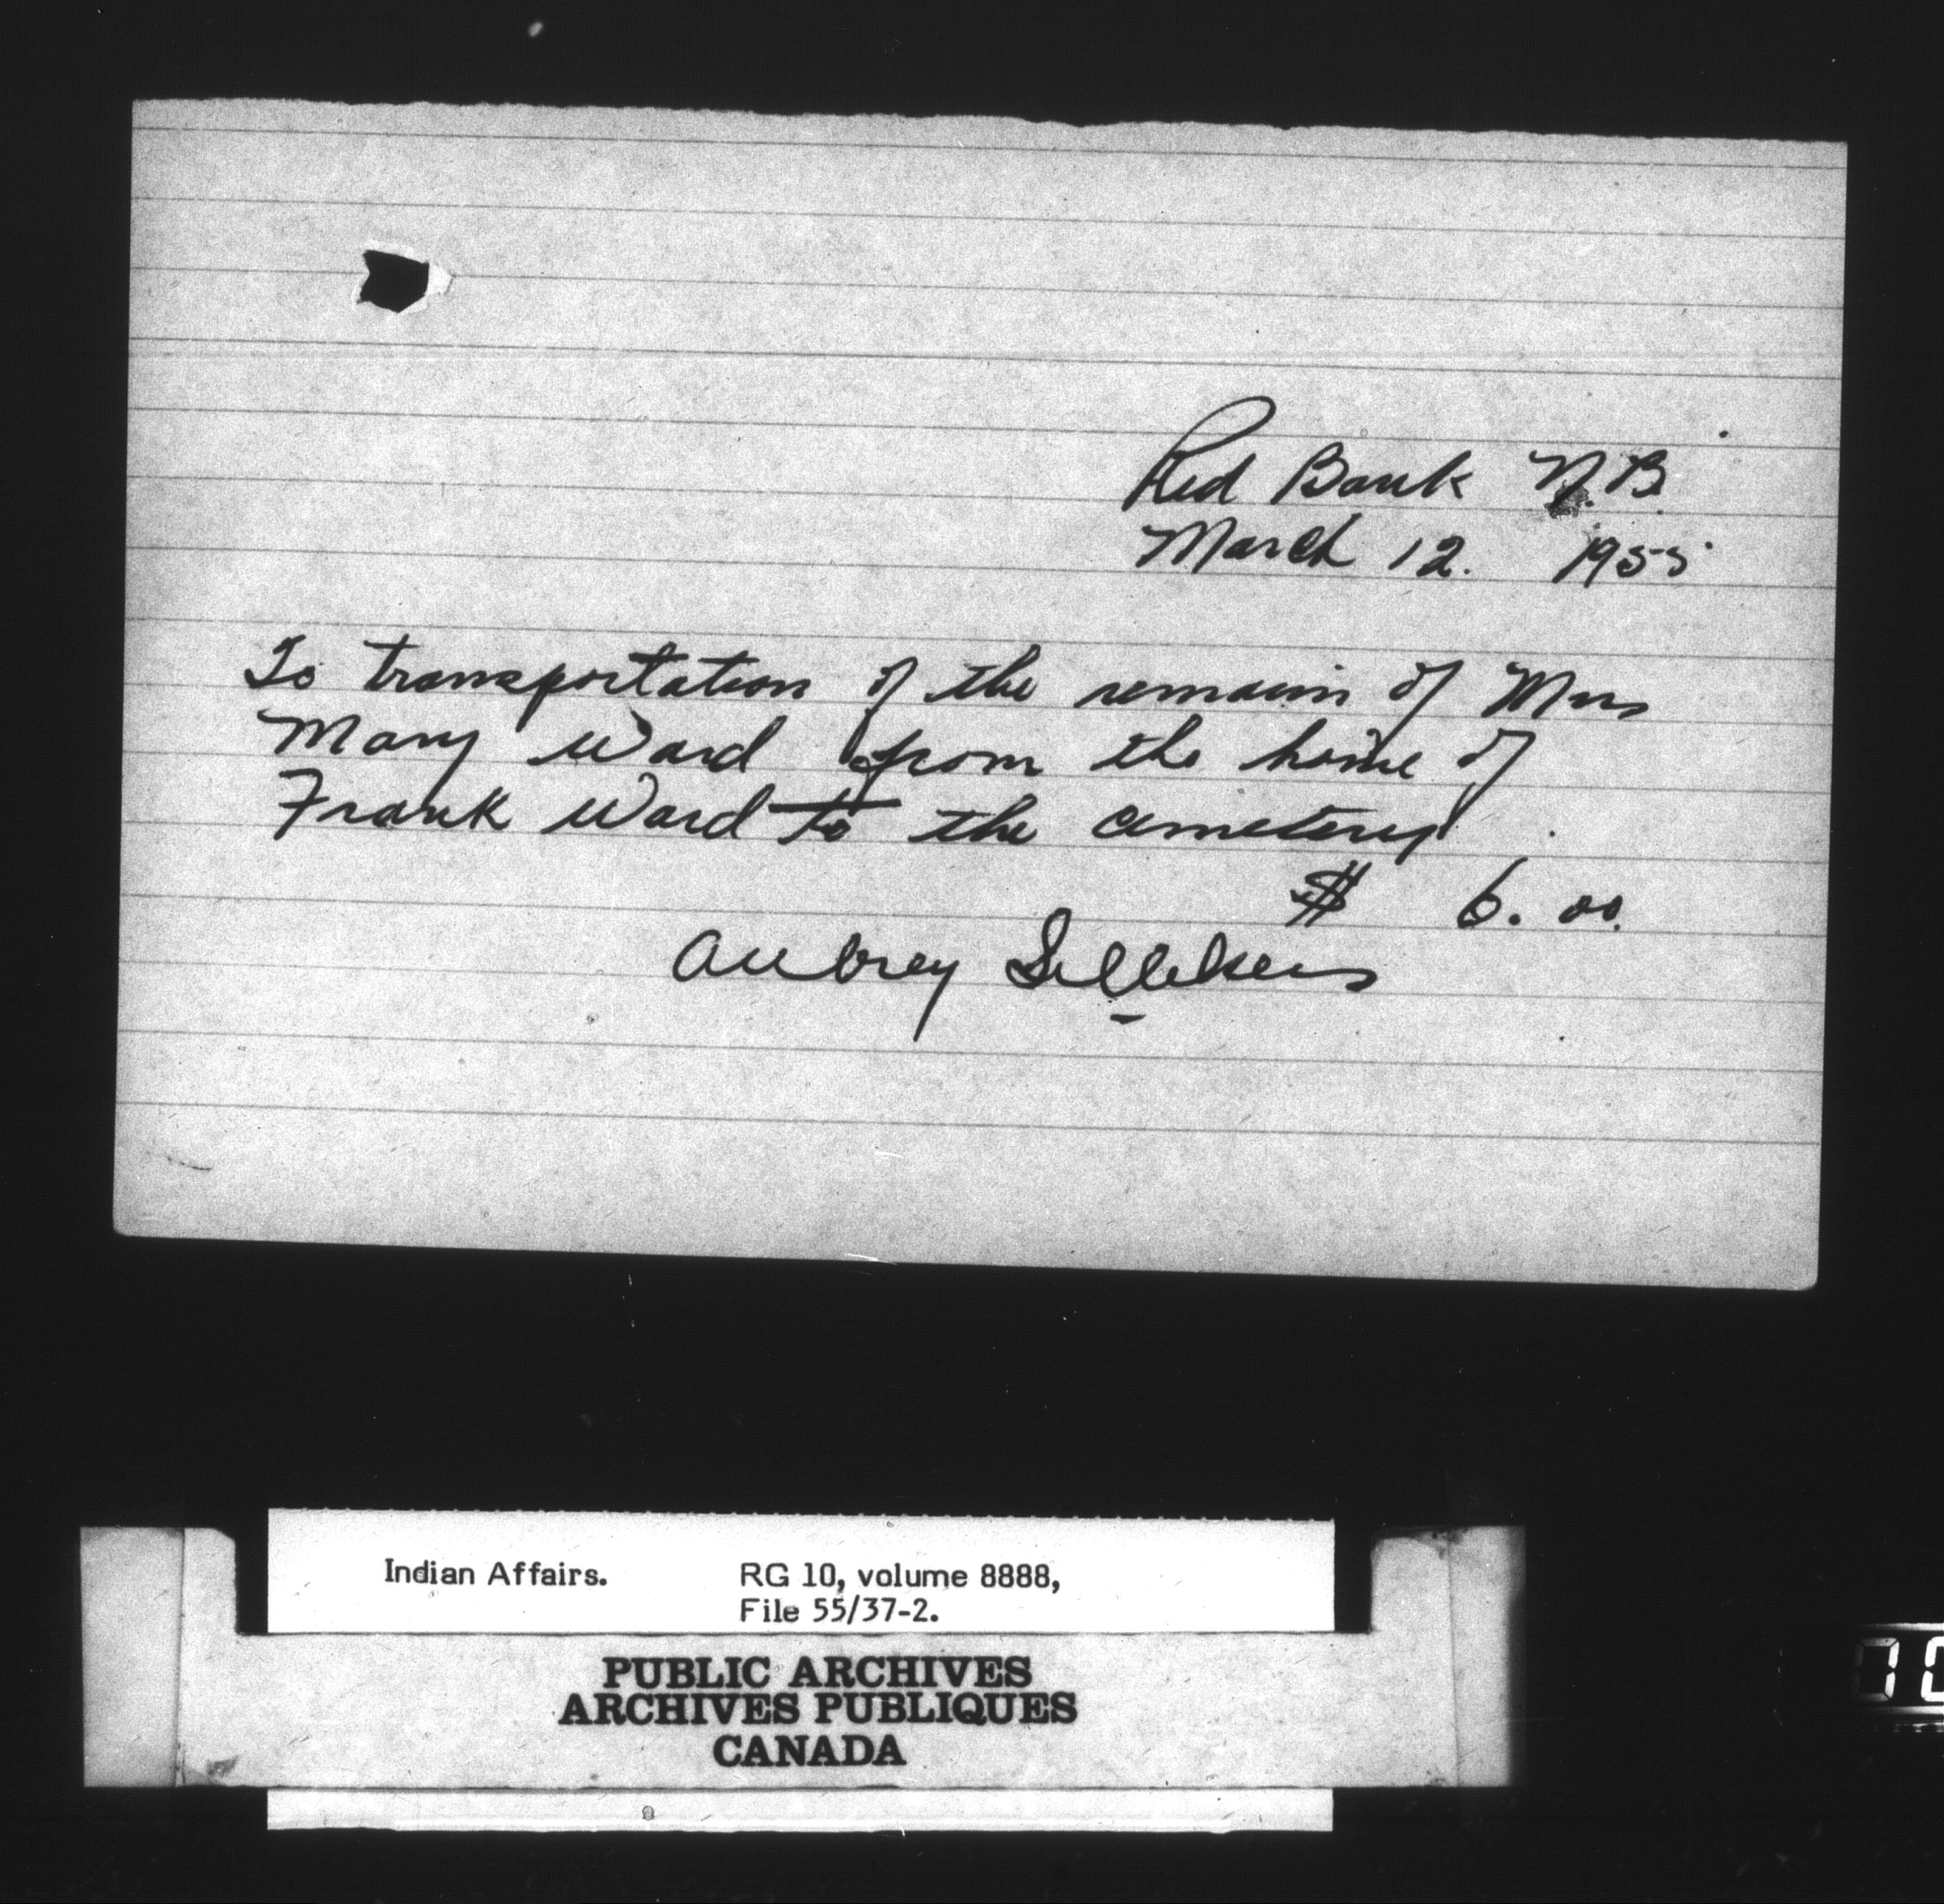 Red Bank N.B.
March 12. 1955
To transportation of the remains of Mrs
Mary Ward from the home of
Frank Ward to the cemetery
$ 6.00.
Aubrey
Indian Affairs. RG 10, volume 8888,
File 55/37-2.
PUBLIC ARCHIVES
ARCHIVES PUBLIQUES
CANADA